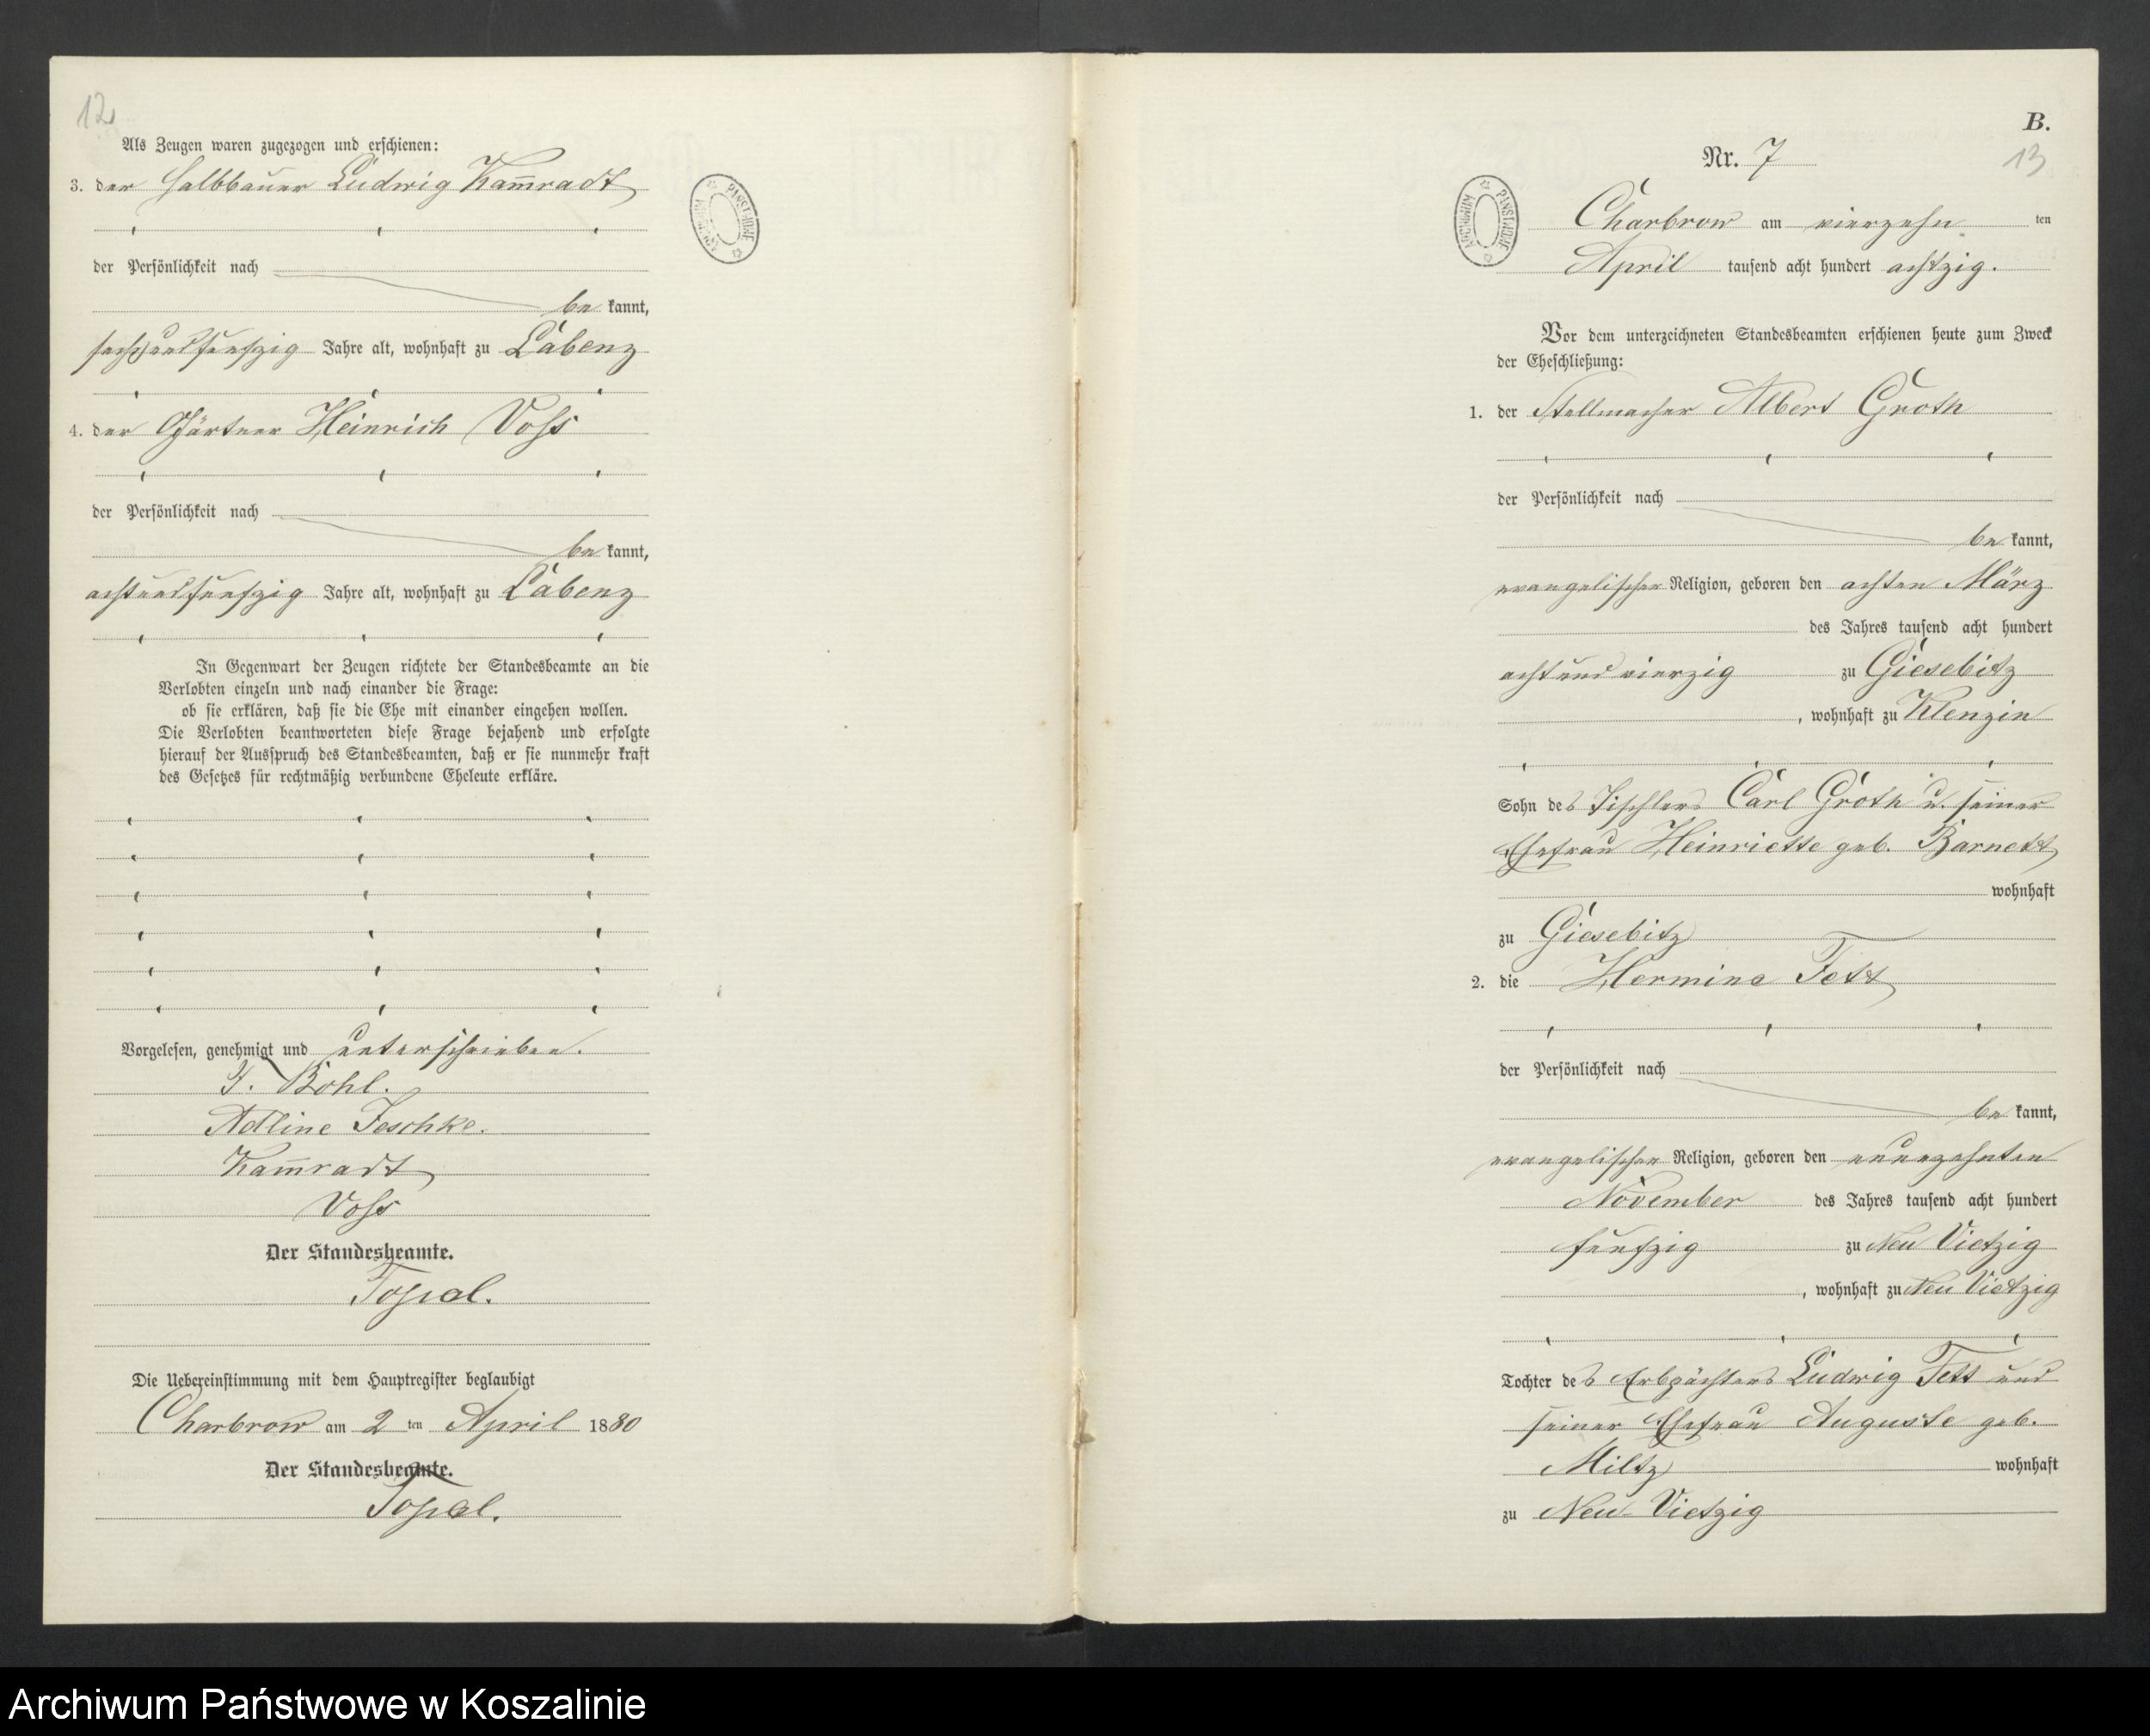 12
Als Zeugen waren zugezogen und erschienen:
3. der Halbbauer Ludwig Kam̄radt
der Persönlichkeit nach
be kannt,
sechsundfunfzig Jahre alt, wohnhaft zu Labenz
4. der Gärtner Heinrich Voss
der Persönlichkeit nach
be kannt,
achtundfunfzig Jahre alt, wohnhaft zu Labenz
In Gegenwart der Zeugen richtete der Standesbeamte an die
Verlobten einzeln und nach einander die Frage:
ob sie erklären, daß sie die Ehe mit einander eingehen wollen.
Die Verlobten beantworteten diese Frage bejahend und erfolgte
hierauf der Ausspruch des Standesbeamten, daß er sie nunmehr kraft
des Gesetzes für rechtmäßig verbundene Eheleute erkläre.
Vorgelesen, genehmigt und unterschrieben.
Bohl.
Adline Jeschke.
Kam̄radt
Voss
Der Standesbeamte.
Die Uebereinstimmung mit dem Hauptregister beglaubigt
Charbrow am 2 ten April 1880
Der Standesbeamte.
ARCHIWUM PAŃSTWOWE
B.
Nr. 7
13
ARCHIWUM PAŃSTWOWE
Charbrow am vierzehn ten
April tausend acht hundert achtzig.
Vor dem unterzeichneten Standesbeamten erschienen heute zum Zweck
der Eheschließung:
1. der Stellmacher Albert Groth
der Persönlichkeit nach
be kannt,
evangelischer Religion, geboren den achten März
des Jahres tausend acht hundert
achtundvierzig zu Giesebitz
, wohnhaft zu Klenzin
Sohn des Tischlers Carl Groth u. seiner
Ehefrau Heinriette geb. Barnett
wohnhaft
zu Giesebitz
2. die Hermine Fett
der Persönlichkeit nach
be kannt,
evangelischer Religion, geboren den neunzehnten
November des Jahres tausend acht hundert
funfzig zu Neu Vietzig
, wohnhaft zu Neu Vietzig
Tochter des Erbpächters Ludwig Fett und
seiner Ehefrau Auguste geb.
Miltz wohnhaft
zu Neu-Vietzig
Archiwum Państwowe w Koszalinie